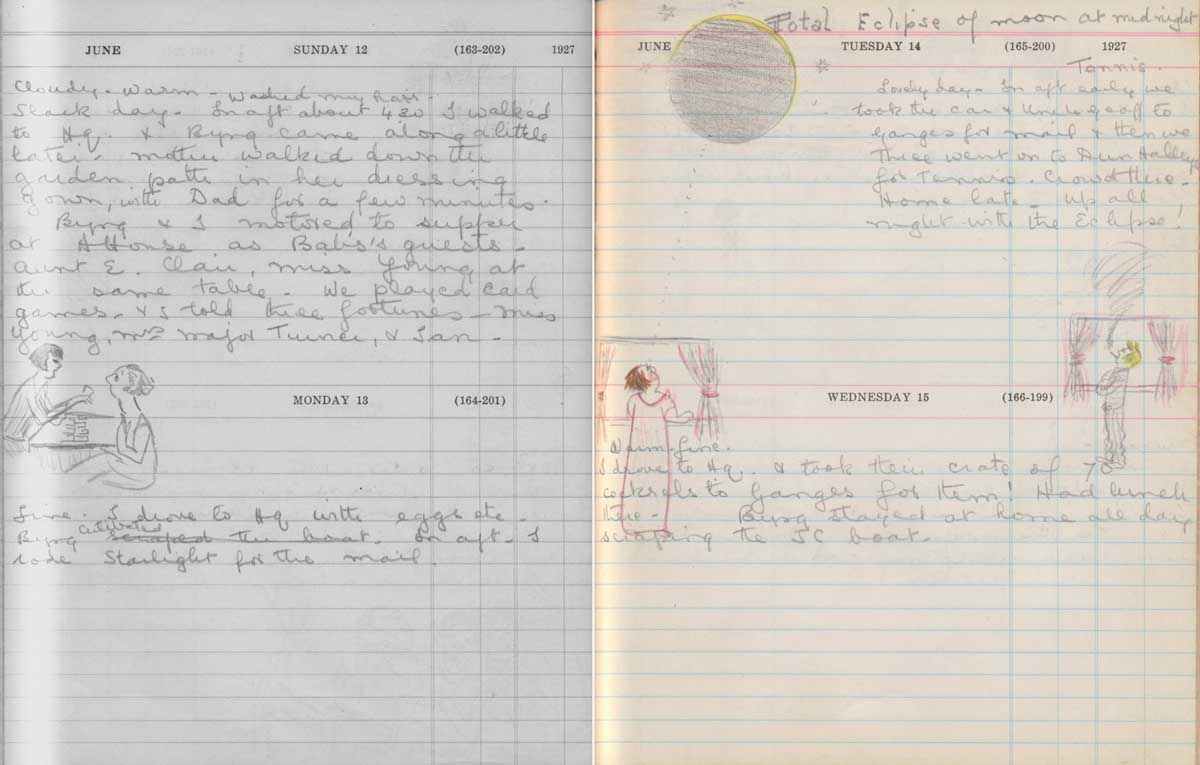 JUNE SUNDAY 12 (163-202) 1927
Cloudy - Warm - Washed my hair -
Slack day - In aft about 430 I walked
to Hq. & Byng came along a little
later - Mother walked down the
garden path in her dressing
gown, with Dad for a few minutes.
Byng & I motored to supper
at as guests -
Aunt E. Clair, Miss Young at
the same table - We played card
games - & I told three fortunes - Miss
Young, Mrs Major Turner, & Ian -
MONDAY 13 (164-201)
Fine - I drove to Hq with eggs etc -
Byng cultivated
scraped the boat - In aft - I
rode Starlight for the mail.
Total Eclipse of moon at midnight
JUNE TUESDAY 14 (165-200) 1927
Tennis.
Lovely day - In aft early we
took the car & to
Ganges for mail & then we
three went on to
for Tennis. Crowd there -
Home late - up all
night with the Eclipse!
WEDNESDAY 15 (166-199)
Warm - fine.
I drove to Hq. & took their crate of 70
cockrels to Ganges for them! Had lunch
there - Byng stayed at home all day
scraping the boat.